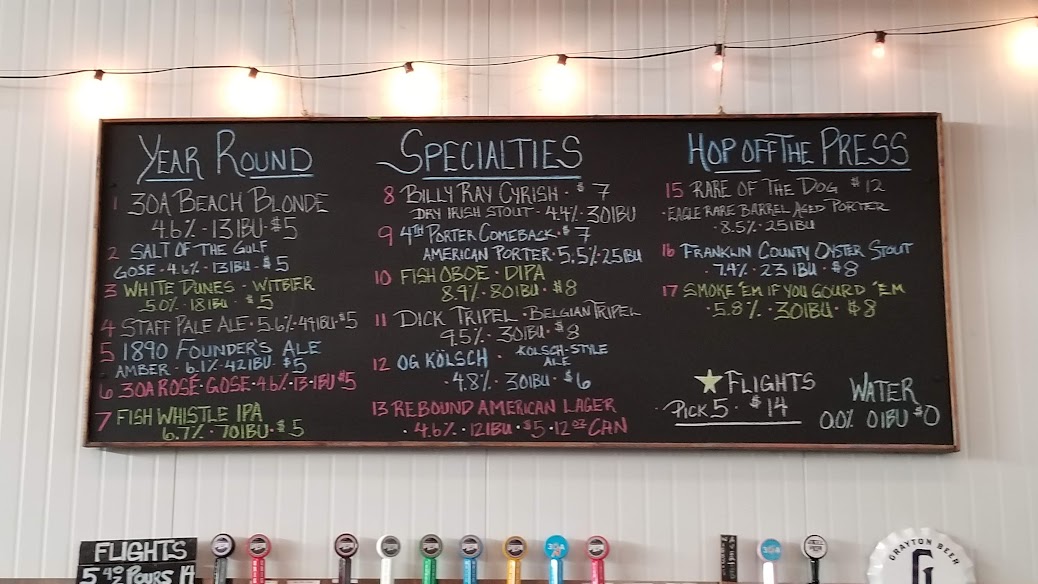 YEAR ROUND
1 30A BEACH BLONDE
4.6% · 13 IBU · $5
2 SALT OF THE GULF
GOSE · 4.6% · 13 IBU · $5
3 WHITE DUNES · WITBIER
5.0% · 18 IBU · $5
4 STAFF PALE ALE · 5.6% · 49 IBU · $5
5 1890 FOUNDER'S ALE
AMBER · 6.1% · 42 IBU · $5
6 30A ROSÉ · GOSE · 4.6% · 13 · IBU $5
7 FISH WHISTLE IPA
6.7% · 70 IBU · $5
SPECIALTIES
8 BILLY RAY CYRISH · $7
DRY IRISH STOUT · 4.4% · 30 IBU
9 4TH PORTER COMEBACK · $7
AMERICAN PORTER · 5.5% · 25 IBU
10 FISH OBOE · DIPA
8.9% · 80 IBU · $8
11 DICK TRIPEL · BELGIAN TRIPEL
9.5% · 30 IBU · $8
12 OG KÖLSCH · KOLSCH-STYLE
ALE
· 4.8% · 30 IBU · $6
13 REBOUND AMERICAN LAGER
· 4.6% · 12 IBU · $5 · 12 OZ CAN
HOP OFF THE PRESS
15 RARE OF THE DOG $12
· EAGLE RARE BARREL AGED PORTER
· 8.5% · 25 IBU
16 FRANKLIN COUNTY OYSTER STOUT
· 7.4% · 23 IBU · $8
17 SMOKE 'EM IF YOU GOURD 'EM
· 5.8% · 30 IBU · $8
FLIGHTS
· PICK 5 · $14
WATER
0.0% 0 IBU $0
FLIGHTS
5 4OZ POURS 14
30A
30A
GRAYTON BEER
G